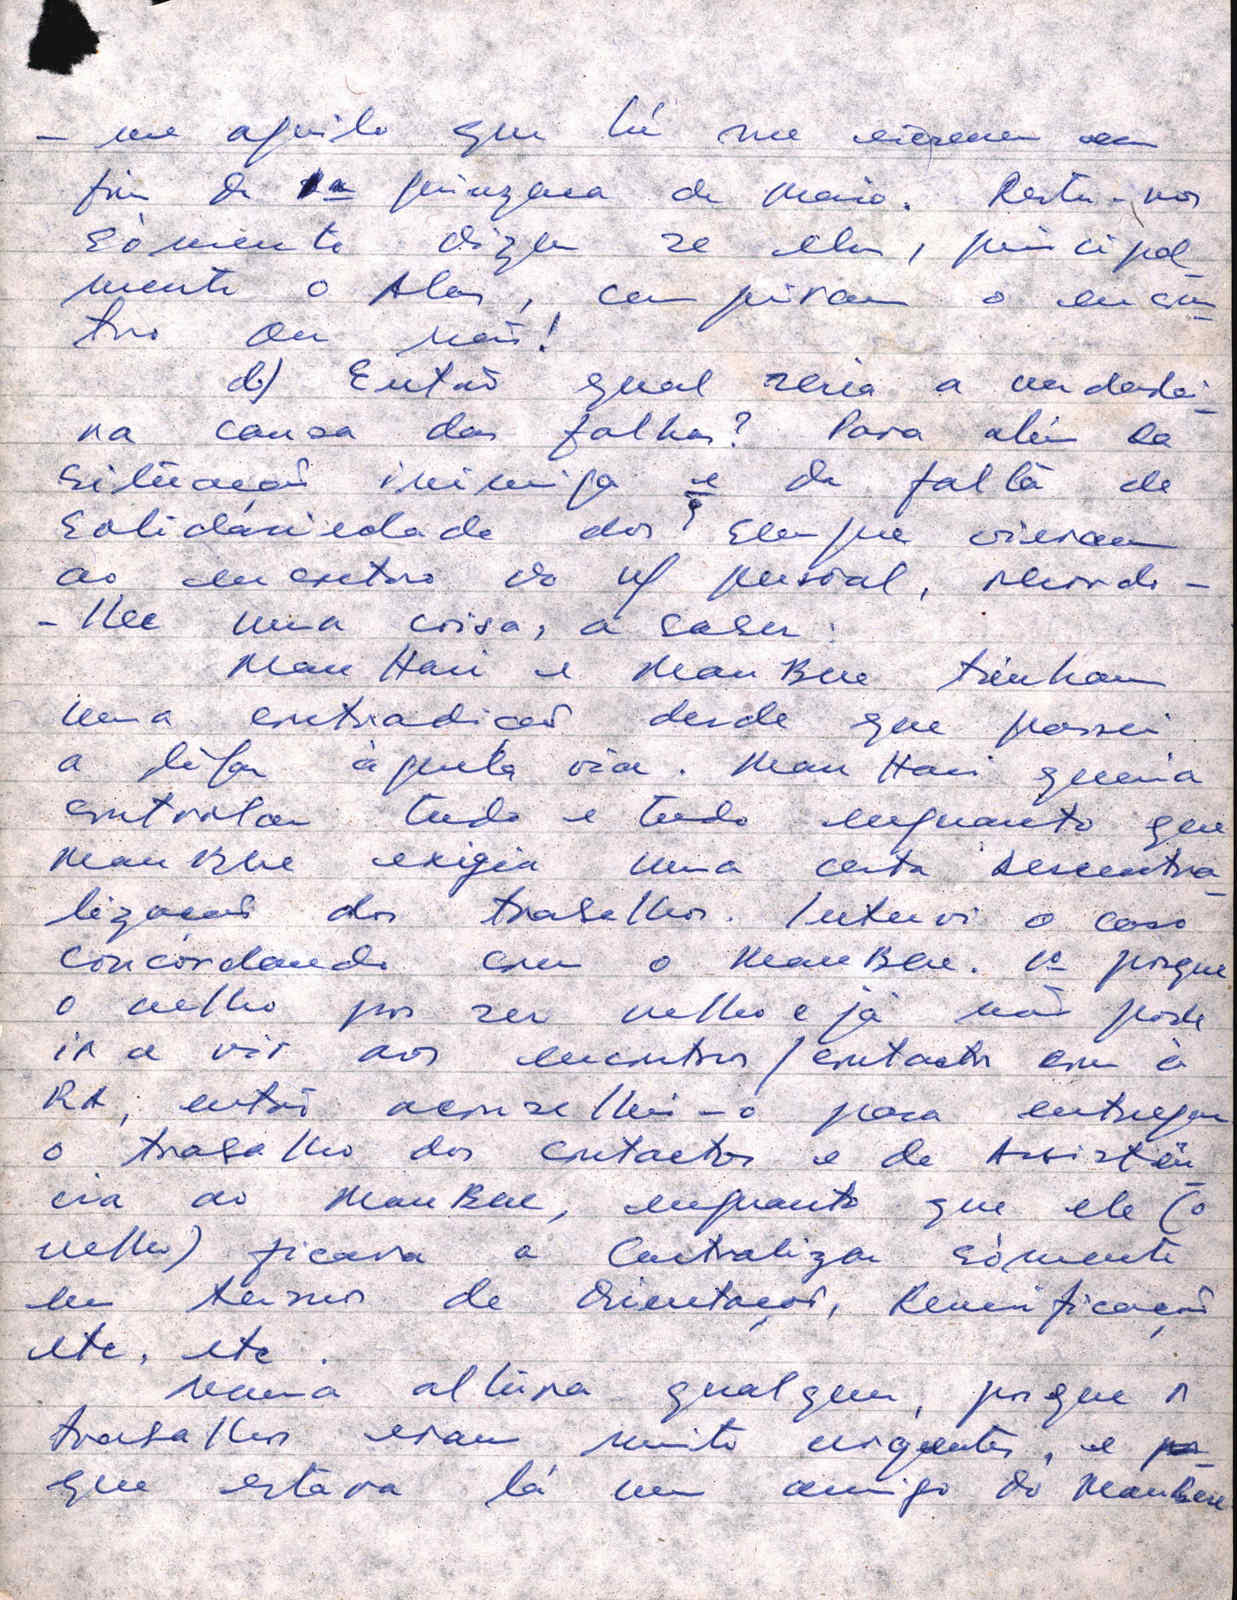 - me aquilo que lá me
fim da 1a quinzena de Maio. Resta-nos
sòmente dizer se eles, principal-
mente o Alas, cumpriram o encon-
tro ou não!
d) Então qual seria a verdadei-
ra causa das falhas? Para além da
situação inimiga e da falta de
solidáriedade dos que vieram
ao encontro do n/ pessoal, recordo-
- lhe uma coisa, a saber:
Mau Hari e Mau Bere tinham
uma contradição desde que passei
a ligar àquela via. Mau Hari queria
controlar tudo e tudo enquanto que
Mau Bere exigia uma certa descentra-
lização dos trabalhos. Intervi o caso
concordando com o Mau Bere. 1o porque
o velho por ser velho e já não pode
ir e vir aos encontros/contactos com à
RA, então aconselhei-o para entregar
o trabalho dos contactos e de Assistên-
cia ao Mau Bere, enquanto que ele (o
velho) ficava a Centralizar sòmente
em termos de Orientação,
etc, etc.
Numa altura qualquer, porque os
trabalhos eram muito urgentes, e
que estava lá um amigo do Mau Bere